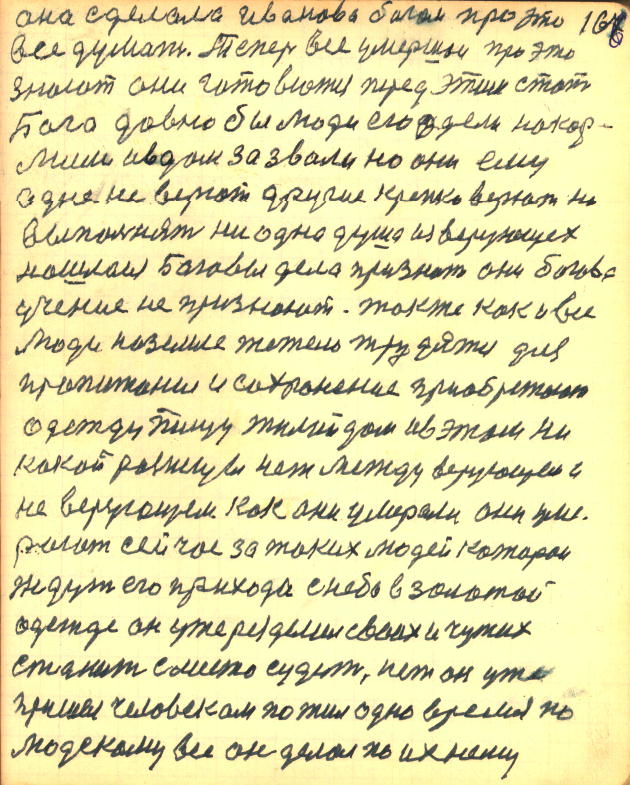 она сделала Иванова богом про это 167
все думат. Тепер все умершии про это
знают они готовютя перед этим стат
Бога довно бы люди его одели накор-
мили и в дом зазвали но они ему
одне не верют другие крепко верют но
выполнят ни одна душа из верующех
нашлася Боговы дела признат они богова
учение не признают. также как и все
люди на земле тежело трудятя для
пропитания и сохронение приобретают
одежду пищу жилой дом и в этом ни
какой разницы нет между верующем и
не верующем как они умерали они уме-
рают сейчас за таких людей которои
ждут его прихода с неба в золотой
одежде он уже разделил своих и чужих
станит с место судит, нет он уже
пришел человеком пожил одно время по
людскому все он делал по ихнему